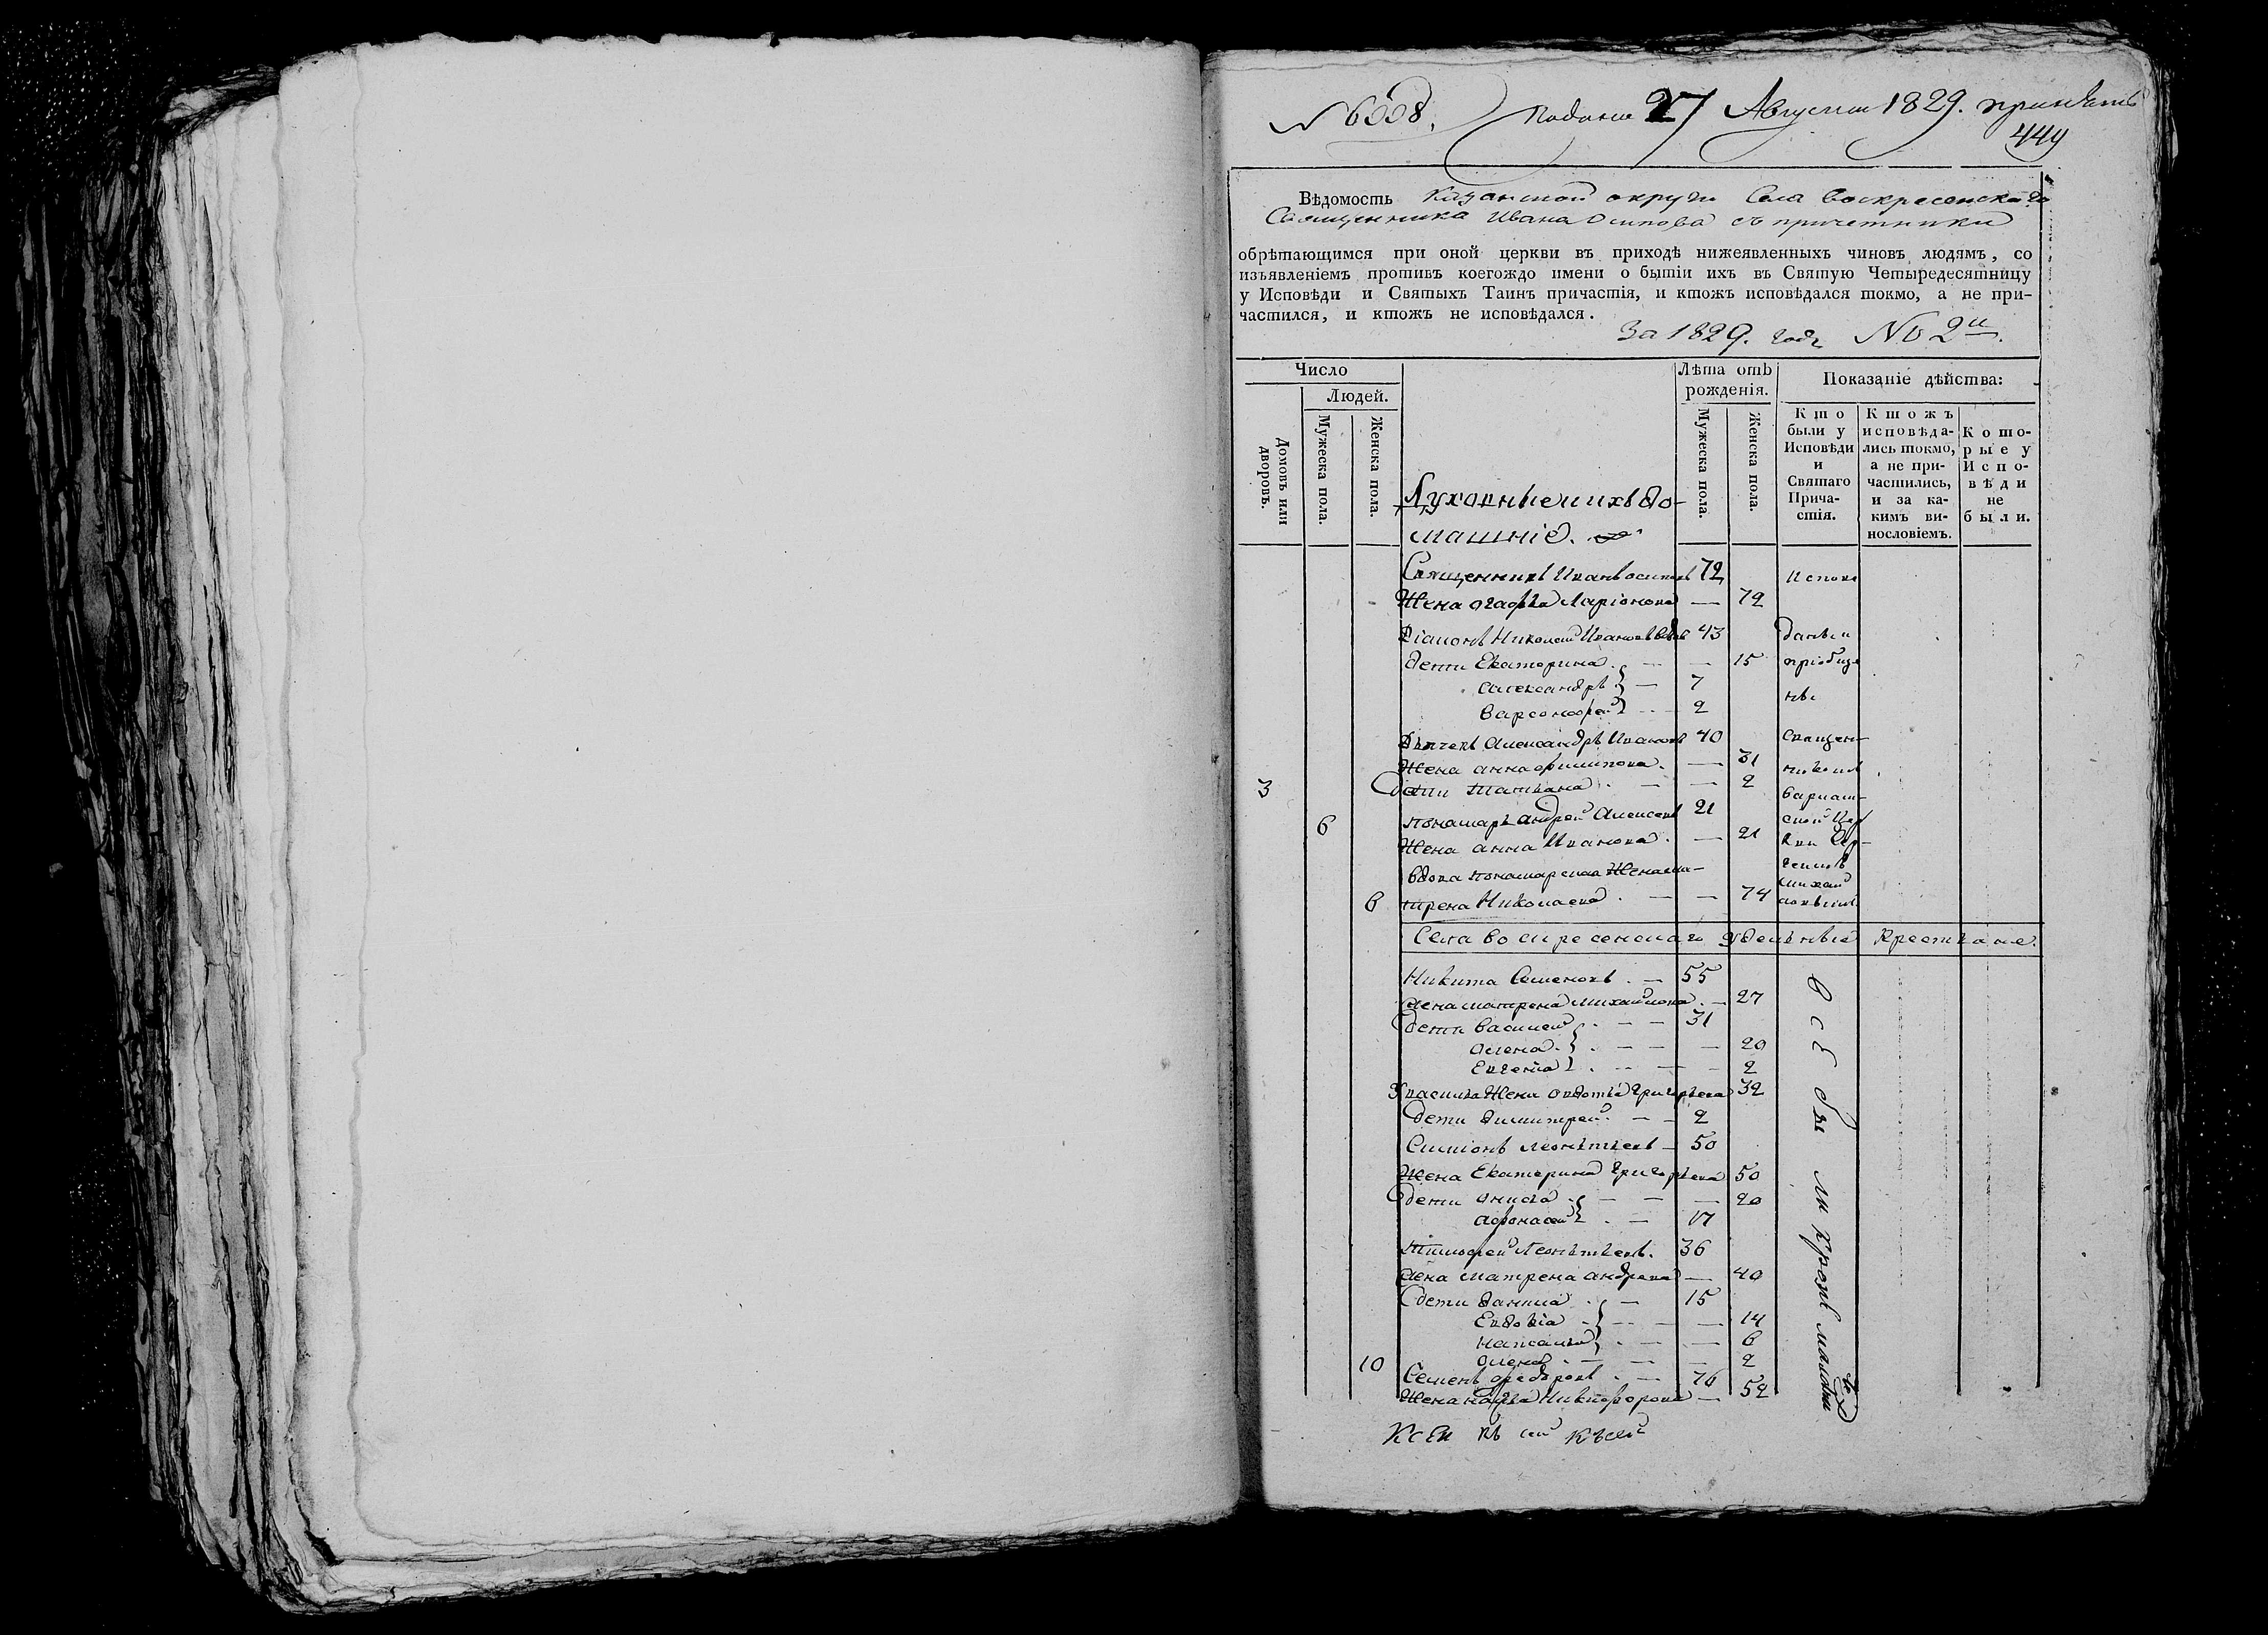 № 6558. Подано 27 Августа 1829. принять
449
Вѣдомость Казанской округи Села Воскресенскаго
Священника Ивана Осипова съ причетники
обрѣтающимся при оной церкви въ приходѣ нижеявленныхъ чиновъ людямъ, со
изъявленіемъ противъ коегождо имени о бытіи ихъ въ Святую Четыредесятницу
у Исповѣди и Святыхъ Таинъ причастія, и ктожъ исповѣдался токмо, а не при-
частился, и ктожъ не исповѣдался.
За 1829. годъ №
Число
Людей.
Домовъ или дворовъ.
Мужеска пола.
Женска пола.
Духовные и ихъ до-
машніе.
Лѣта отъ
рожденія.
Мужеска пола.
Женска пола.
Показаніе дѣйства:
Кто
были у
Исповѣди
и
Святаго
Прича-
стія.
Ктожъ
исповѣда-
лись токмо,
а не при-
частились,
и за ка-
кимъ ви-
нословіемъ.
Кото-
рые у
Испо-
вѣди
не
были.
Священникъ Иванъ Осиповъ 72
Жена Ларіонова — 72
Діаконъ Николай Ивановъ 43
дети Екатерина — — 15
Александръ — 7
Варсонофей 2
Дьячекъ Александръ Ивановъ 40
Жена Анна Филипова — 31
3 дети Татьяна — — 2
6 Пономарь Андрей Алексеевъ 21
Жена Анна Иванова — 21
Вдова пономарская Жена Ма-
6 трена Николаева — — 74
Испове
данъ и
пріобще
нъ
Священ-
никомъ
Церк
кви Сер-
геемъ
Михай
ловымъ
Села Воскресенскаго удельные Крестьяне.
Никита Семеновъ — 55
Жена Матрена Михайлова — 27
дети Василей — — 31
Олена — — — 20
Евгенія — — 2
У Василья Жена Овдотья Григорьева 32
дети Димитрей — — 2
Симіонъ Леонтьевъ — 50
Жена Екатерина Григорьева 50
дети Анисья — — — 20
Афонасей — 17
Тимофей Леонтьевъ. 36
Жена Матрена Андреева — 40
дети Данила — 15
Евдокіа — — — 14
Наталья — — — 6
10 Олена — — — 2
Семенъ Федоровъ — 76
Жена Никифорова — 52
всѣ были кроме малолетныхъ
къ сей